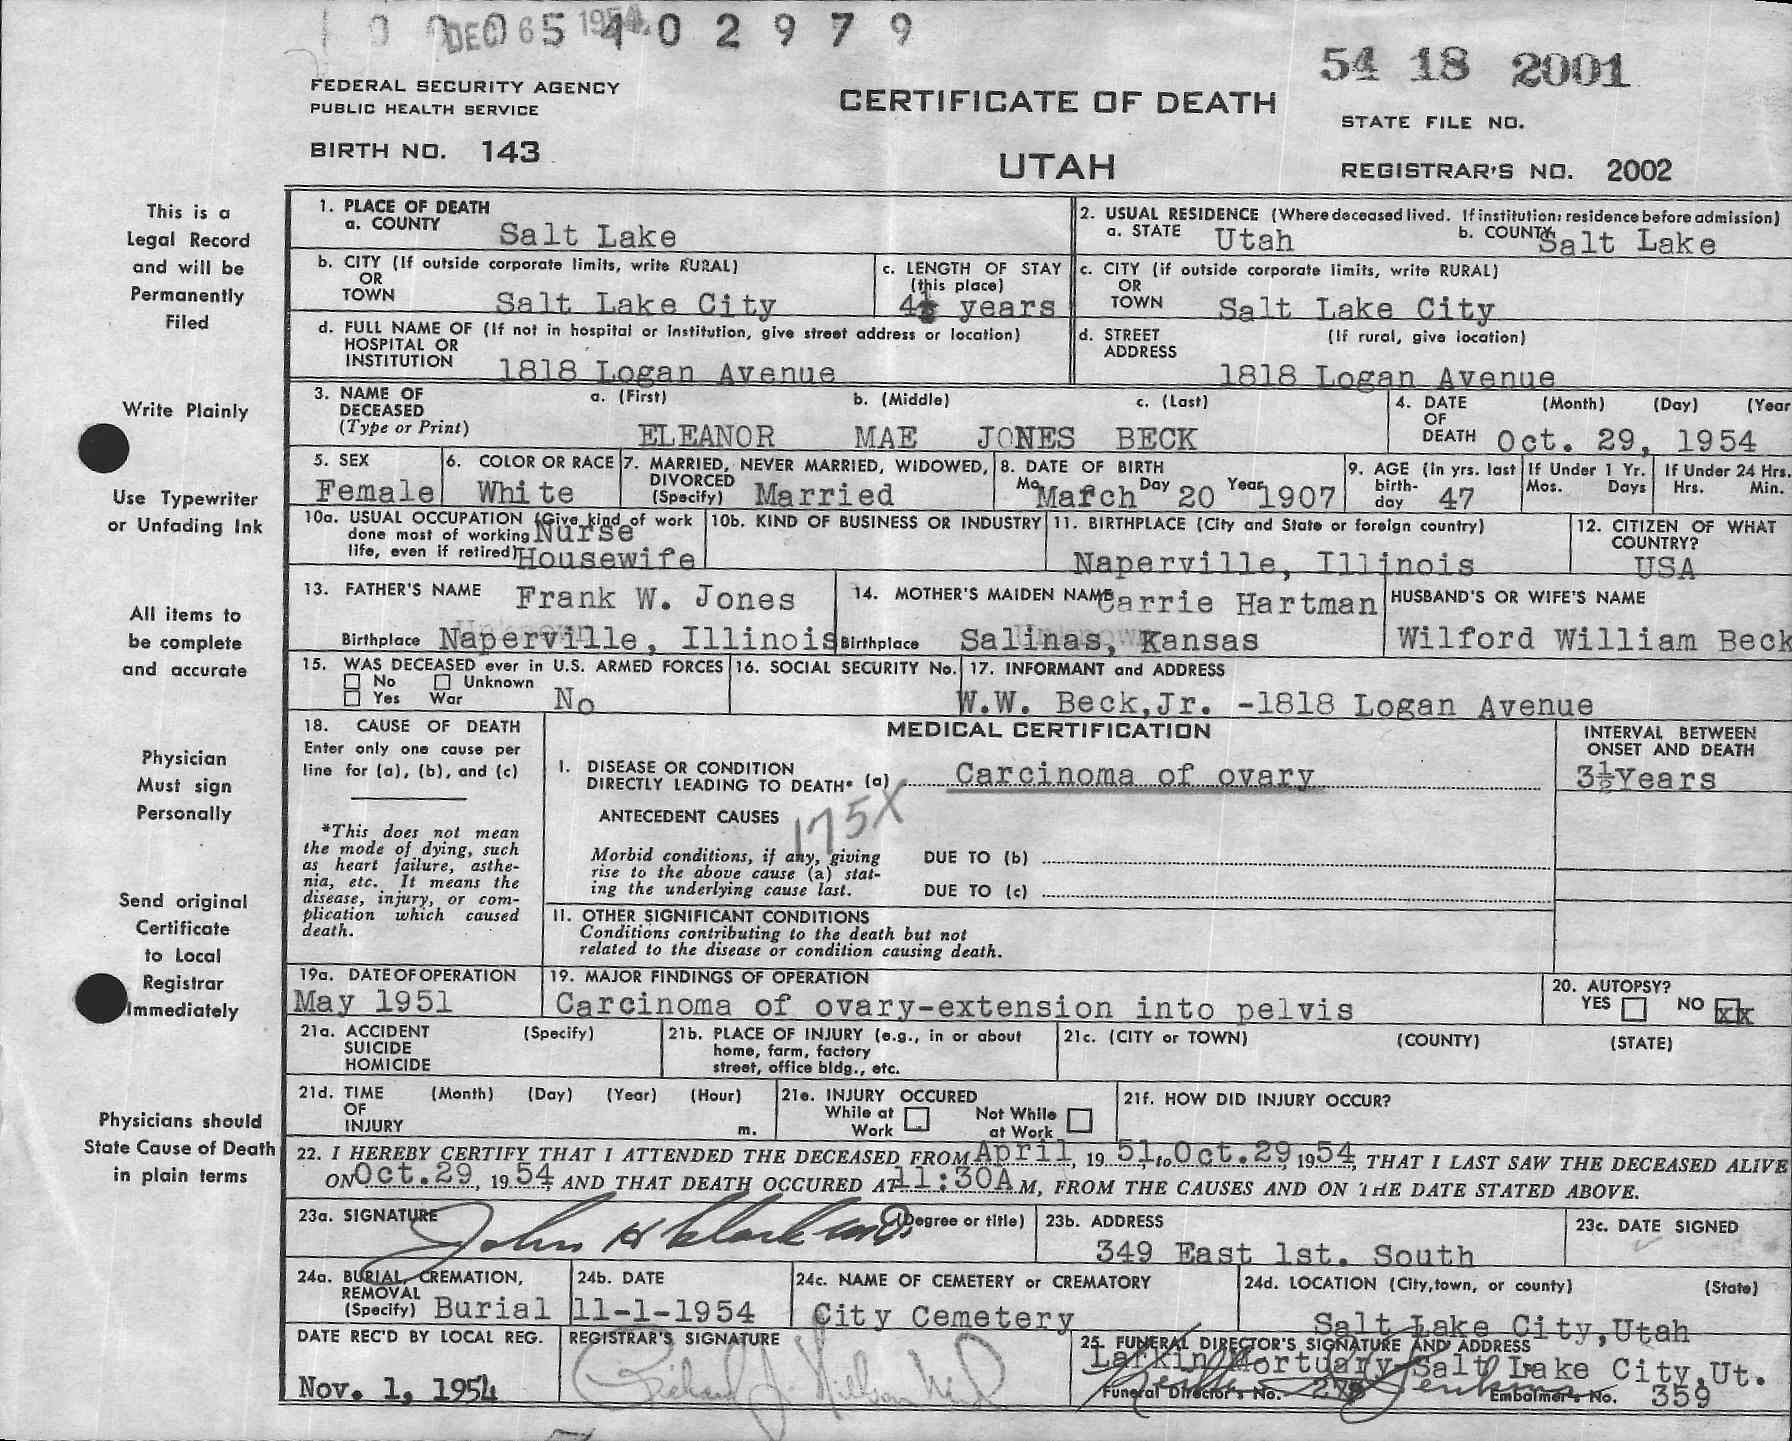 DEC 6 1954
0 5 4 0 2 9 7 9
54 18 2001
FEDERAL SECURITY AGENCY
PUBLIC HEALTH SERVICE
CERTIFICATE OF DEATH
STATE FILE NO.
BIRTH NO. 143
UTAH
REGISTRAR'S NO. 2002
This is a
Legal Record
and will be
Permanently
Filed
Write Plainly
Use Typewriter
or Unfading Ink
All items to
be complete
and accurate
Physician
Must sign
Personally
Send original
Certificate
to Local
Registrar
Immediately
Physicians should
State Cause of Death
in plain terms
1. PLACE OF DEATH
a. COUNTY Salt Lake
2. USUAL RESIDENCE (Where deceased lived. If institution: residence before admission)
a. STATE Utah b. COUNTY Salt Lake
b. CITY (If outside corporate limits, write RURAL)
OR
TOWN Salt Lake City
c. LENGTH OF STAY
(this place)
years
c. CITY (if outside corporate limits, write RURAL)
OR
TOWN Salt Lake City
d. FULL NAME OF (If not in hospital or institution, give street address or location)
HOSPITAL OR
INSTITUTION 1818 Logan Avenue
d. STREET (If rural, give location)
ADDRESS
1818 Logan Avenue
3. NAME OF a. (First) b. (Middle) c. (Last)
DECEASED
(Type or Print) ELEANOR MAE JONES BECK
4. DATE (Month) (Day) (Year
OF
DEATH Oct. 29, 1954
5. SEX
Female
6. COLOR OR RACE
White
7. MARRIED, NEVER MARRIED, WIDOWED,
DIVORCED
(Specify) Married
8. DATE OF BIRTH
Mo March Day 20 Year 1907
9. AGE (in yrs. last
birth-
day 47
If Under 1 Yr.
Mos. Days
If Under 24 Hrs.
Hrs. Min.
10a. USUAL OCCUPATION (Give kind of work
done most of working Nurse
life, even if retired) Housewife
10b. KIND OF BUSINESS OR INDUSTRY
11. BIRTHPLACE (City and State or foreign country)
Naperville, Illinois
12. CITIZEN OF WHAT
COUNTRY?
USA
13. FATHER'S NAME Frank W. Jones
Birthplace Naperville, Illinois
14. MOTHER'S MAIDEN NAME Carrie Hartman
Birthplace Salinas, Kansas
HUSBAND'S OR WIFE'S NAME
Wilford William Beck
15. WAS DECEASED ever in U.S. ARMED FORCES
No Unknown
Yes War No
16. SOCIAL SECURITY No.
17. INFORMANT and ADDRESS
W.W. Beck,Jr. -1818 Logan Avenue
18. CAUSE OF DEATH
Enter only one cause per
line for (a), (b), and (c)
*This does not mean
the mode of dying, such
as heart failure, asthe-
nia, etc. It means the
disease, injury, or com-
plication which caused
death.
MEDICAL CERTIFICATION
INTERVAL BETWEEN
ONSET AND DEATH
I. DISEASE OR CONDITION
DIRECTLY LEADING TO DEATH* (a) Carcinoma of ovary
3½Years
ANTECEDENT CAUSES
175X
Morbid conditions, if any, giving
rise to the above cause (a) stat-
ing the underlying cause last.
DUE TO (b)
DUE TO (c)
II. OTHER SIGNIFICANT CONDITIONS
Conditions contributing to the death but not
related to the disease or condition causing death.
19a. DATE OF OPERATION
May 1951
19. MAJOR FINDINGS OF OPERATION
Carcinoma of ovary-extension into pelvis
20. AUTOPSY?
YES NO xx
21a. ACCIDENT (Specify)
SUICIDE
HOMICIDE
21b. PLACE OF INJURY (e.g., in or about
home, farm, factory
street, office bldg., etc.
21c. (CITY or TOWN) (COUNTY) (STATE)
21d. TIME (Month) (Day) (Year) (Hour)
OF
INJURY m.
21e. INJURY OCCURED
While at Not While
Work at Work
21f. HOW DID INJURY OCCUR?
22. I HEREBY CERTIFY THAT I ATTENDED THE DECEASED FROM April, 19 51, to Oct. 29, 19 54, THAT I LAST SAW THE DECEASED ALIVE
ON Oct. 29, 19 54, AND THAT DEATH OCCURED AT 11:30A M, FROM THE CAUSES AND ON THE DATE STATED ABOVE.
23a. SIGNATURE (Degree or title)
John H Clark
23b. ADDRESS
349 East 1st. South
23c. DATE SIGNED
24a. BURIAL, CREMATION,
REMOVAL
(Specify) Burial
24b. DATE
11-1-1954
24c. NAME OF CEMETERY or CREMATORY
City Cemetery
24d. LOCATION (City,town, or county) (State)
Salt Lake City,Utah
DATE REC'D BY LOCAL REG.
Nov. 1, 1954
REGISTRAR'S SIGNATURE
25. FUNERAL DIRECTOR'S SIGNATURE AND ADDRESS
Larkin Mortuary-Salt Lake City,Ut.
Funeral Director's No. Embalmer's No. 359